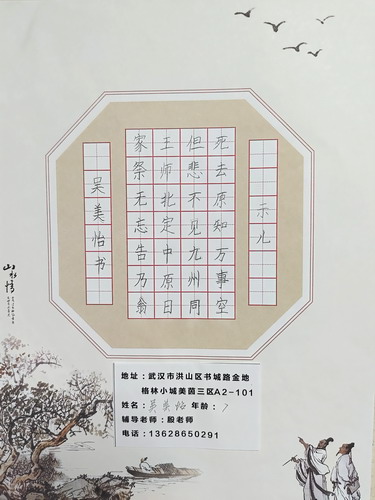 示儿
死去原知万事空
但悲不见九州同
王师北定中原日
家祭无忘告乃翁
吴美怡书
山水情
地址：武汉市洪山区书城路金地
格林小城美茵三区A2-101
姓名：吴美怡 年龄：7
辅导老师：殷老师
电话：13628650291